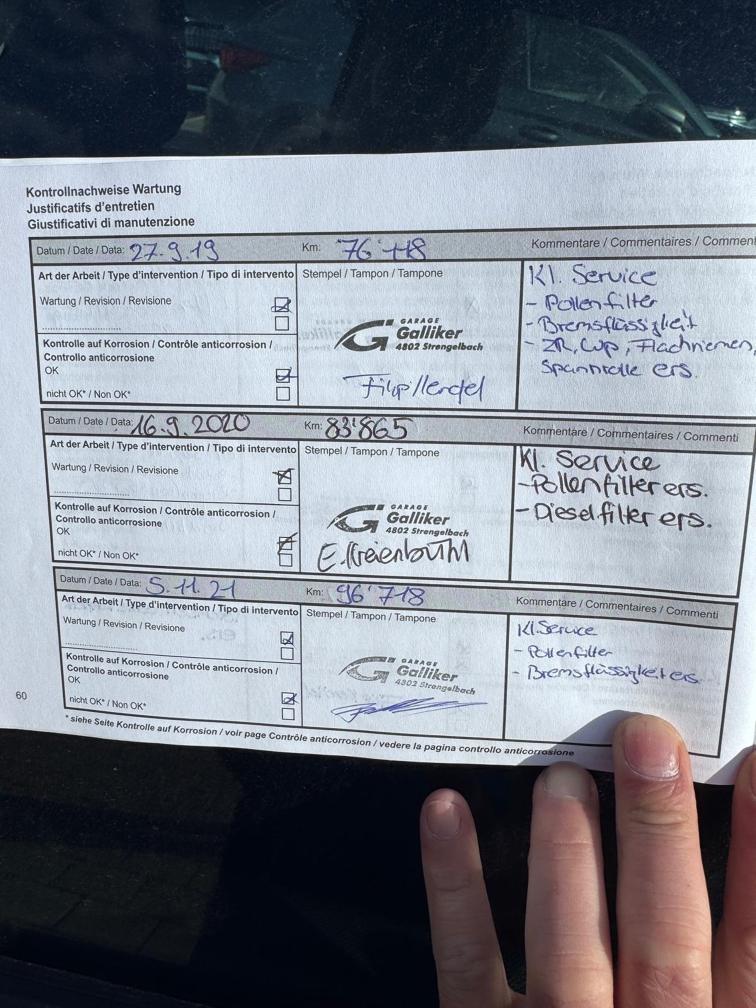 Kontrollnachweise Wartung
Justificatifs d'entretien
Giustificativi di manutenzione
Datum / Date / Data: 27.9.19 Km: Kommentare / Commentaires / Commen
Art der Arbeit / Type d'intervention / Tipo di intervento
Stempel / Tampon / Tampone
Wartung / Revision / Revisione
Kontrolle auf Korrosion / Contrôle anticorrosion /
Controllo anticorrosione
OK
nicht OK* / Non OK*
GARAGE
Galliker
4802 Strengelbach
Kl. Service
- Pollenfilter
- Bremsflüssigkeit
- ZR, Wp, Flachriemen,
Spannrolle ers.
Datum / Date / Data: 16.9.2020 Km: 83'865 Kommentare / Commentaires / Commenti
Art der Arbeit / Type d'intervention / Tipo di intervento
Stempel / Tampon / Tampone
Wartung / Revision / Revisione
Kontrolle auf Korrosion / Contrôle anticorrosion /
Controllo anticorrosione
OK
nicht OK* / Non OK*
GARAGE
Galliker
4802 Strengelbach
E. Kreienbühl
Kl. Service
- Pollenfilter ers.
- Dieselfilter ers.
Datum / Date / Data: 5.11.21 Km: 96'718 Kommentare / Commentaires / Commenti
Art der Arbeit / Type d'intervention / Tipo di intervento
Stempel / Tampon / Tampone
Wartung / Revision / Revisione
Kontrolle auf Korrosion / Contrôle anticorrosion /
Controllo anticorrosione
OK
nicht OK* / Non OK*
GARAGE
Galliker
4802 Strengelbach
Kl. Service
- Pollenfilter
- Bremsflüssigkeit ers.
60
* siehe Seite Kontrolle auf Korrosion / voir page Contrôle anticorrosion / vedere la pagina controllo anticorrosione